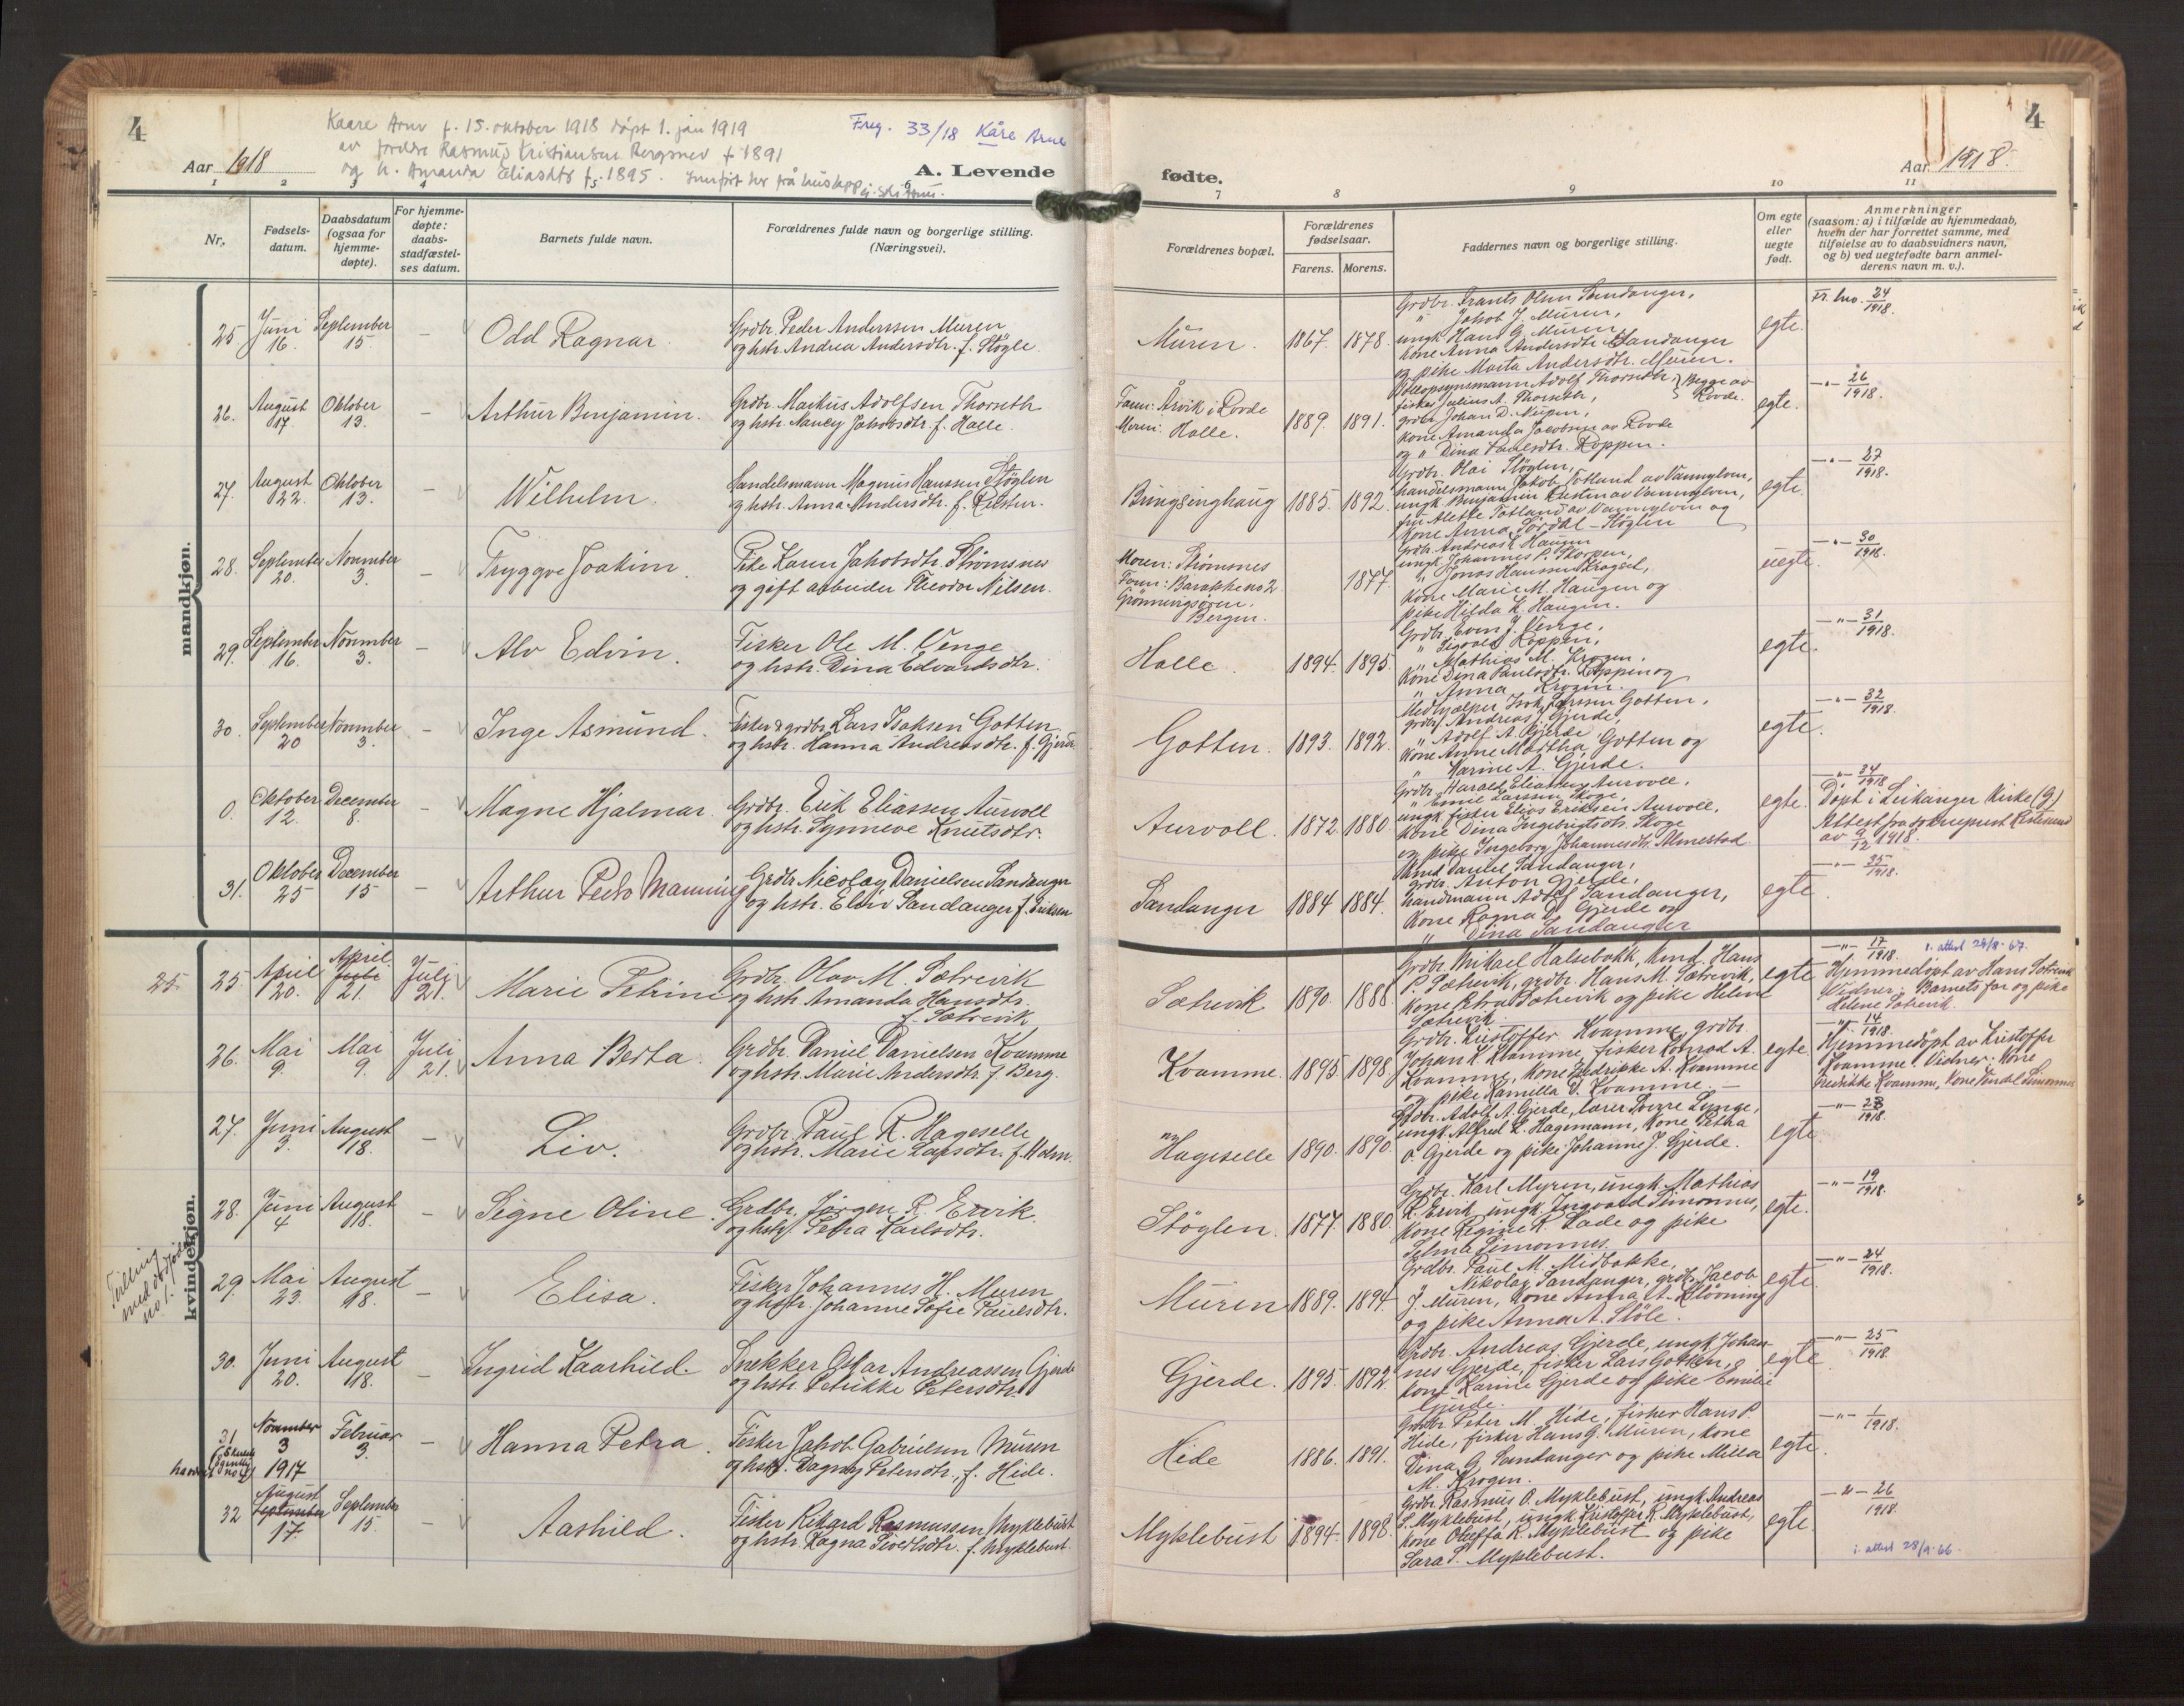 4
Kaare Arne f. 15. oktober 1918 døpt 1. jan 1919
av foreldre Rasmus Kristiansen Bergsnev f 1891
og h. Amanda Eliasdtr f. 1895.
Freg. 33/18 Kåre Arne
Aar 1918
A. Levende
1 2 3 4 5 6
Nr.
Fødsels-
datum.
Daabsdatum
(ogsaa for
hjemme-
døpte).
For hjemme-
døpte:
daabs-
stadfæstel-
ses datum.
Barnets fulde navn.
Forældrenes fulde navn og borgerlige stilling.
(Næringsvei).
mandkjøn.
25 Juni 16. September 15. – Odd Ragnar. Grdbr. Peder Anderssen Muren
og hstr. Andrea Andersdtr. f. Støgle.
26. August 17 Oktober 13. – Arthur Benjamin. Grdbr. Markus Adolfsen Thorseth
og hstr. Nancy Jakobsdtr. f. Halle.
27. August 22. Oktober 13. – Wilhelm. Handelsmann Magnus Hanssen Støglen
og hstr. Anna Andersdtr. f. Kvisten.
28. September 20. November 3. – Tryggve Joakim. Pike Karen Jakobsdtr. Strømsnes
og gift arbeider Theodor Nilsen.
29. September 16. November 3. – Alv Edvin. Fisker Ole M. Venge
og hstr. Dina Edvardsdtr.
30. September 20 November 3. – Inge Asmund. Fisker & grdbr. Lars Isaksen Gotten
og hstr. Hanna Andreasdtr. f. Gjerde
0. Oktober 12. December 8. – Magne Hjalmar. Grdbr. Erik Eliassen Aurvoll
og hstr. Synneve Knutsdtr.
31. Oktober 25 December 15 – Arthur Peder Manning Grdbr. Nicolay Danielsen Sandanger
og hstr. Elin Sandanger f. Eriksen
kvindekjøn.
25. 25. April 20. April Juli 21. Juli 21. Marie Petrine Grdbr. Olav M. Sætrevik
og hstr. Amanda Hansdtr.
f. Sætrevik
26. Mai 9. Mai 9. Juli 21. Anna Berta. Grdbr. Daniel Danielsen Kvamme
og hstr. Marie Andersdtr. f. Berg.
27. Juni 3. August 18. – Liv. Grdbr. Paul R. Hageselle
og hstr. Marie Larsdtr. f. Holm.
28. Juni 4 August 18. – Signe Oline. Grdbr. Jørgen R. Ervik.
og hstr. Petra Karlsdtr.
Tvilling
med dødfødt
no 1.
29. Mai 23. August 18. – Elisa. Fisker Johannes H. Muren
og hstr. Johanne Sofie Paulsdtr.
30. Juni 20. August 18. – Ingrid Kaarhild. Snekker Oskar Andreassen Gjerde
og hstr. Petrikke Petersdtr.
31 November 3 1917 Februar 3. – Hanna Petra. Fisker Jakob Gabrielsen Muren
og hstr. Dagny Petersdtr. f. Hide.
32 August September 17 September 15. – Aashild. Fisker Rikard Rasmussen Myklebust
og hstr. Ragna Sivertsdtr. f. Myklebust.
4
Aar 1918.
fødte.
7 8 9 10 11
Forældrenes bopæl.
Forældrenes
fødselsaar.
Farens. Morens.
Faddernes navn og borgerlige stilling.
Om egte
eller
uegte
født.
Anmerkninger
(saasom: a) i tilfælde av hjemmedaab,
hvem der har forrettet samme, med
tilføielse av to daabsvidners navn,
og b) ved uegtefødte barn anmel-
derens navn m. v.).
Muren. 1867. 1878. Grdbr. Frants Olsen Sandanger,
" Jakob J. Muren,
ungk. Hans G. Muren
kone Anna Andersdtr Sandanger
og pike Marta Andersdtr. Muren.
egte. Fr. no. 24/1918.
Faren: Årvik i Rovde
Moren: Halle.
1889. 1891. Opsynsmann Adolf Thorseth } Begge av
fisker Julius A. Thorseth, } Rovde.
grdbr. Johan D. Nupen,
kone Amanda Jacobsen av Rovde
og " Dina Paulsdtr. Koppen.
egte. –"– 26/1918.
Bringsinghaug 1885. 1892. Grdbr. Olai Støglen,
handelsmann Jakob Totland av Vannylven,
ungk. Benjamin Kvisten av Vannylven,
fru Alette Totland av Vannylven og
kone Anna Sørdal – Støglen
egte. –"– 27/1918.
Moren: Strømsnes
Faren: Barakke no 2
Grønnevigsøren.
Bergen.
1877. Grdbr. Andreas L. Haugen
ungk. Johannes P. Skorpen,
" Jonas Hanssen Krogset,
kone Marie M. Haugen og
pike Hilda K. Haugen.
uegte. –"– 30/1918.
Halle. 1894. 1895. Grdbr. Even J. Venge,
" Sigvald Koppen,
" Mathias M. Krogen.
kone Dina Paulsdtr. Koppen og
" Anna Krogen.
egte. –"– 31/1918.
Gotten. 1893. 1892. Medhjælper Isak Larssen Gotten,
grdbr. Andreas J. Gjerde,
" Adolf A. Gjerde
kone Anne Martha Gotten og
" Karine A. Gjerde.
egte. –"– 32/1918.
Aurvoll. 1872. 1880. Grdbr. Harald Eliassen Aurvoll.
" Emil Larssen Skoge,
ungk. fisker Elias Eriksen Aurvoll,
kone Dina Ingebrigtsdtr. Skoge
og pike Ingeborg Johannesdtr. Almestad.
egte. –"– 34/1918
Døpt i Leikanger kirke (g)
Attest fra sokneprest
av 9/12 1918.
Sandanger 1884 1884. Kmd. Daniel Sandanger,
grdbr. Anton Gjerde,
handmann Adolf Sandanger,
kone Ragna D. Gjerde og
" Dina Sandanger
egte. –"– 35/1918.
Sætrevik 1890. 1888. Grdbr. Mikael Halsebakk, kmd. Hans
P. Sætrevik, grdbr. Hans M. Sætrevik,
kone Petra Sætrevik og pike Helene
Sætrevik.
egte –"– 17/1918. 1. attest 24/8-67.
Hjemmedøpt av Hans Sætrevik
Vidner: Barnets far og pike
Helene Sætrevik.
Kvamme. 1895 1898. Grdbr. Kristoffer Kvamme, grdbr.
Johan K. Kvamme, fisker Konrad A.
Kvamme, kone Fredrikke A. Kvamme
og pike Kamilla D. Kvamme. –
egte. –"– 14/1918.
Hjemmedøpt av Kristoffer
Kvamme. Vidner: Kone
Fredrikke Kvamme, kone
Hageselle 1890. 1890. Grdbr. Adolf A. Gjerde, lærer Sverre Lunge,
ungk. Alfred L. Hagemann, kone Petra
O. Gjerde og pike Johanne J. Gjerde.
egte. –"– 23/1918.
Støglen. 1877. 1880. Grdbr. Karl Myren, ungk. Mathias
R. Ervik, ungk. Ingvald Simonnes,
kone Regine R. Lade og pike
Selma Simonnes.
egte. –"– 19/1918.
Muren 1889. 1894. Grdbr. Paul M. Midbøkke,
" Nikolay Sandanger, grdb. Jacob
J. Muren, kone Anna A. Kløvning
og pike Anna A. Støle.
egte. –"– 24/1918.
Gjerde. 1895. 1892. Grdbr. Andreas Gjerde, ungk. Johan-
nes Gjerde, fisker Lars Gotten,
kone Karine Gjerde og pike Emilie
Gjerde.
egte. –"– 25/1918.
Hide 1886. 1891. Grdbr. Peter M. Hide, fisker Hans P.
Hide, fisker Hans G. Muren, kone
Dina G. Sandanger og pike Milla
M. Krogen.
egte. –"– 1/1918.
Myklebust 1894. 1898. Grdbr. Rasmus O. Myklebust, ungk. Andreas
S. Myklebust, ungk. Kristoffer R. Myklebust,
kone Oleffa R. Myklebust og pike
Sara S. Myklebust.
egte. –"– 26/1918.
1. attest 28/9-66.